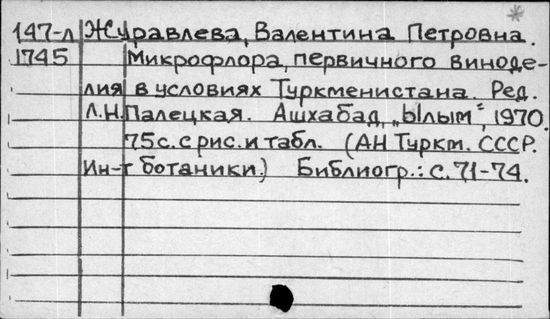 147-л Журавлева, Валентина Петровна.
1745 Микрофлора первичного виноде-
лия в условиях Туркменистана. Ред.
Л.Н. Палецкая. Ашхабад, „Ылым“, 1970.
75с. с рис. и табл. (АН Туркм. ССР.
Ин-т ботаники.) Библиогр.: с. 71-74.